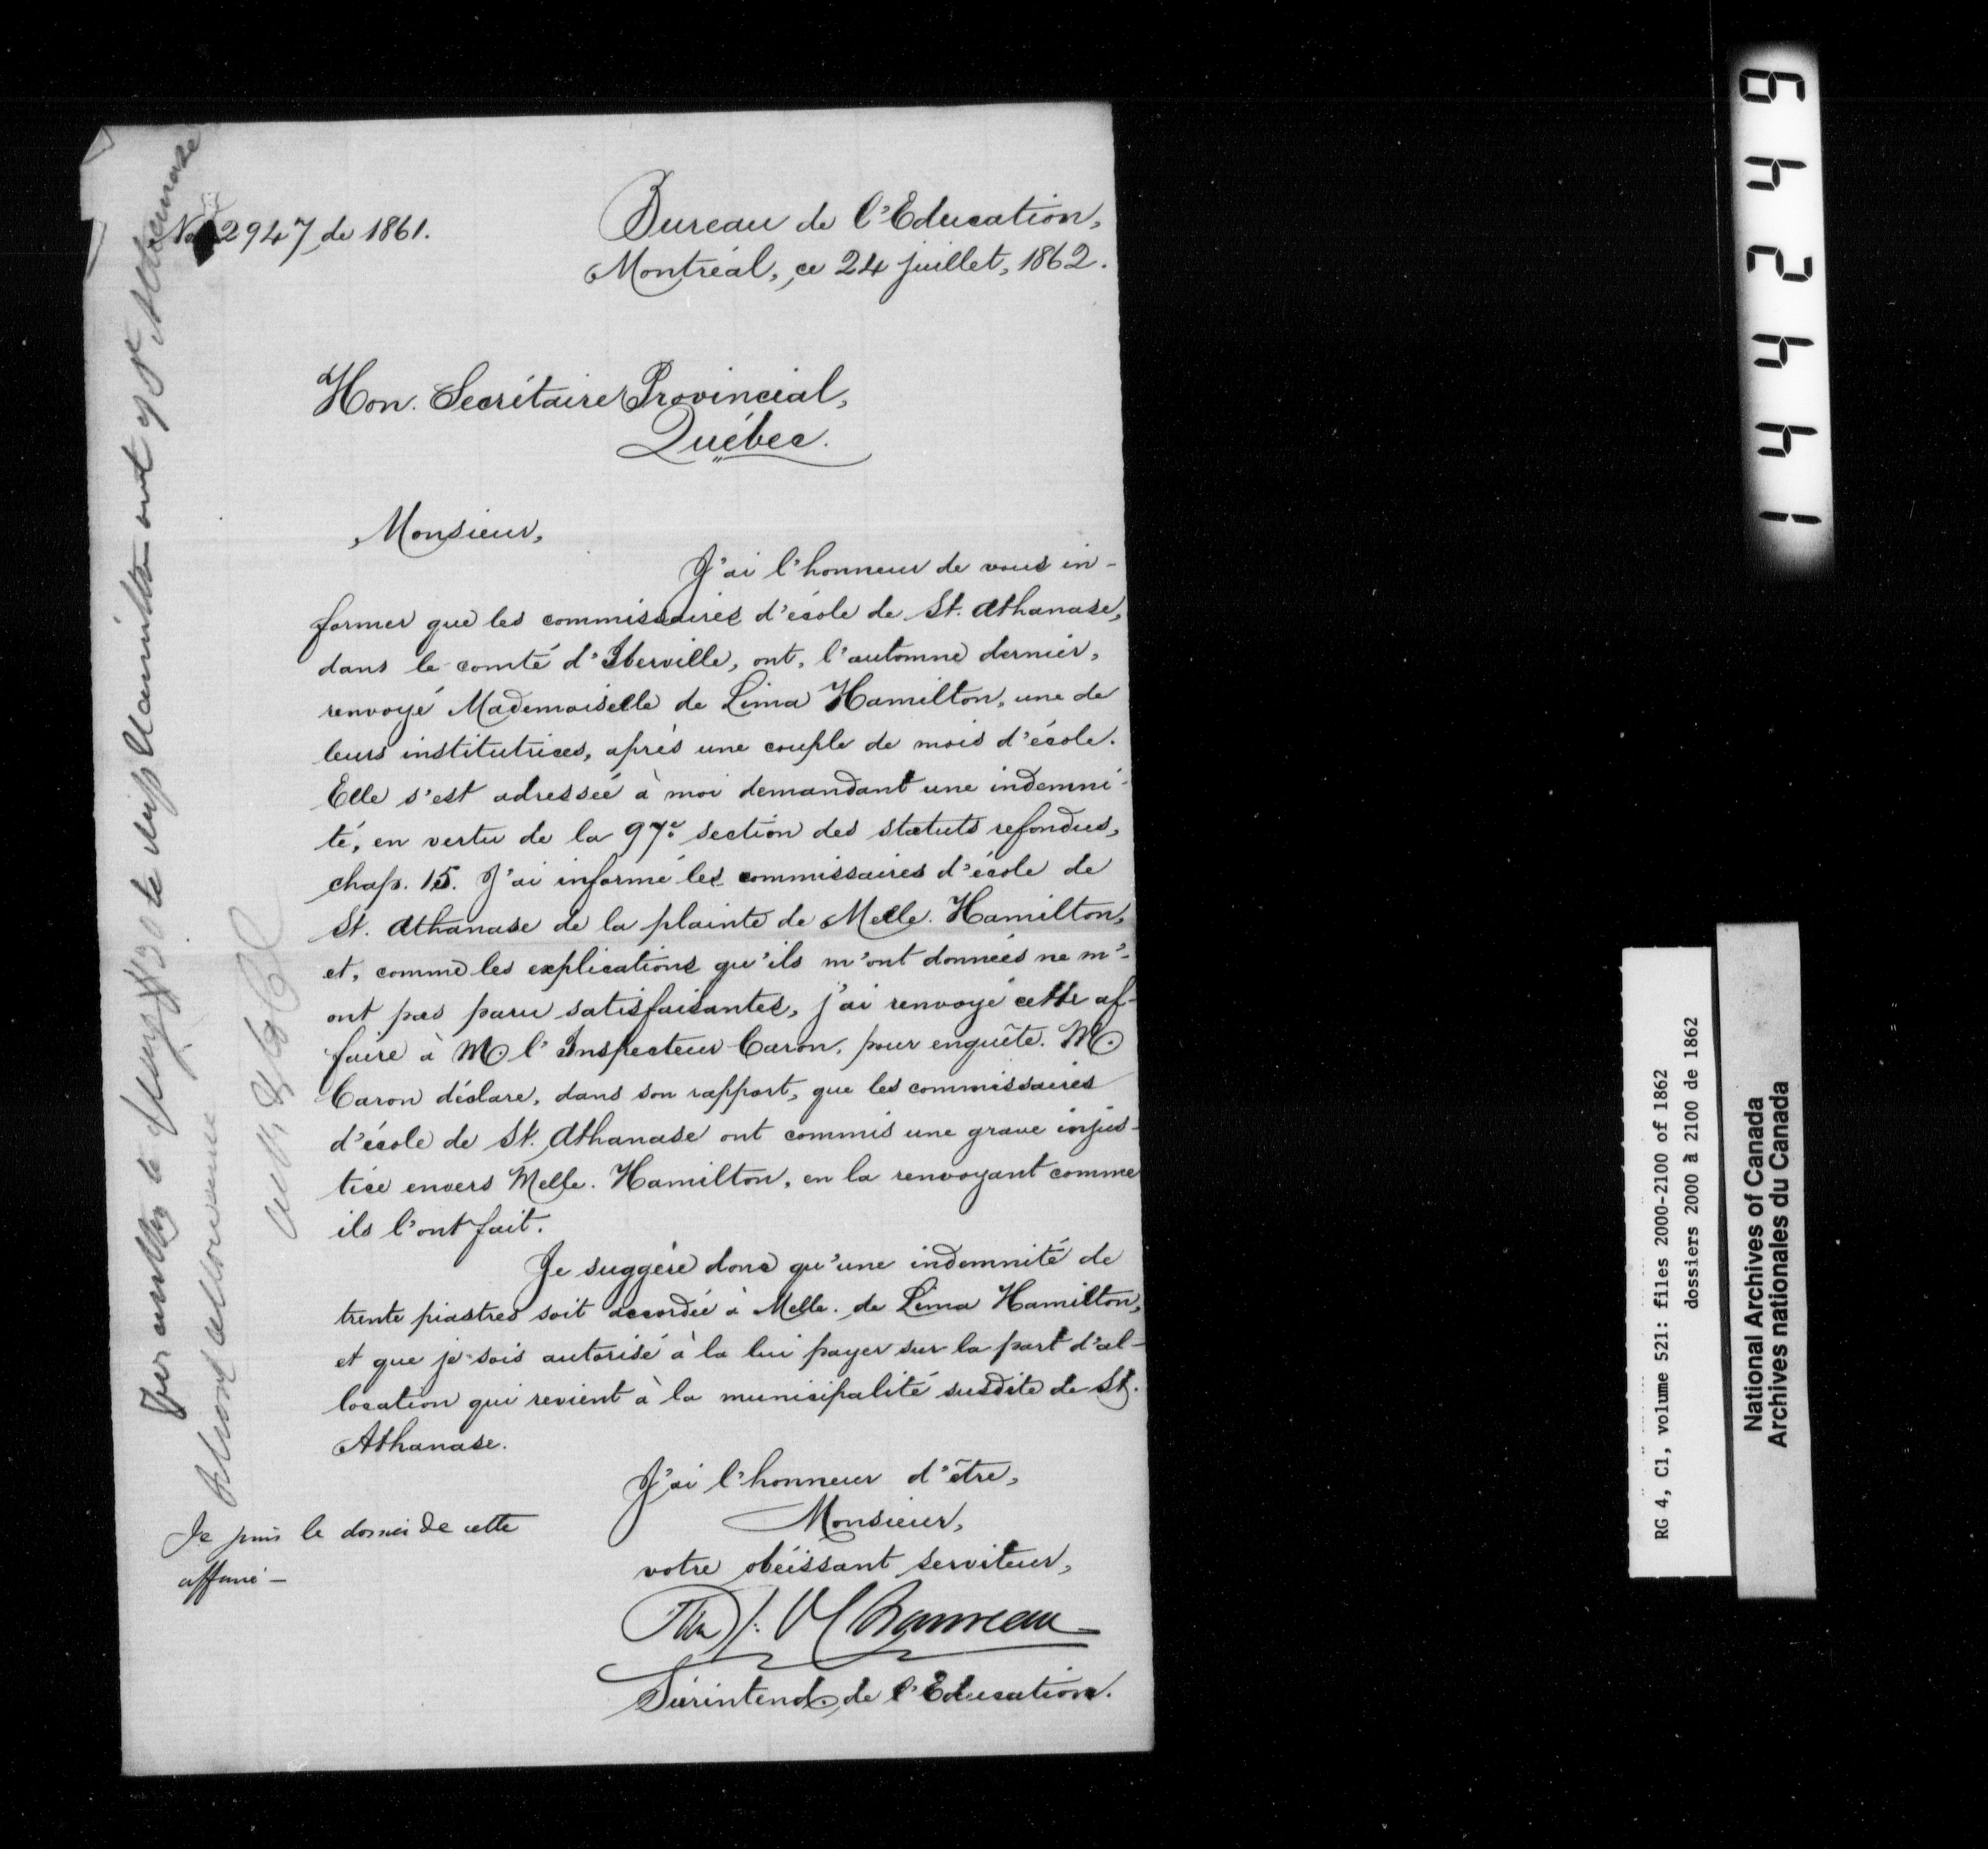 No 2947 de 1861.
Bureau de l'Education,
Montréal, ce 24 juillet, 1862.
Hon. Secrétaire Provincial,
Québec.
Monsieur,
J'ai l'honneur de vous in-
former que les commissaires d'école de St. Athanase,
dans le comté d'Iberville, ont, l'automne dernier,
renvoyé Mademoiselle de Lima Hamilton, une de
leurs institutrices, après une couple de mois d'école.
Elle s'est adressée à moi demandant une indemni-
té, en vertu de la 97e section des statuts refondus,
chap. 15. J'ai informé les commissaires d'école de
St. Athanase de la plainte de Melle. Hamilton,
et, comme les explications qu'ils m'ont données ne m'-
ont pas paru satisfaisantes, j'ai renvoyé cette af-
faire à M. l'Inspecteur Caron, pour enquête. M.
Caron déclare, dans son rapport, que les commissaires
d'école de St. Athanase ont commis une grave injus-
tice envers Melle. Hamilton, en la renvoyant comme
ils l'ont fait.
Je suggère donc qu'une indemnité de
trente piastres soit accordée à Melle. de Lima Hamilton,
et que je sois autorisé à la lui payer sur la part d'al-
location qui revient à la municipalité susdite de St.
Athanase.
J'ai l'honneur d'être,
Monsieur,
votre obéissant serviteur,
Chauveau
Surintend. de l'Education.
Je puis le dossier de cette
affaire —
$30 to Miss Hamilton out of St Athanase
School allowance
RG 4, C1, volume 521: files 2000-2100 of 1862
dossiers 2000 à 2100 de 1862
National Archives of Canada
Archives nationales du Canada
144249